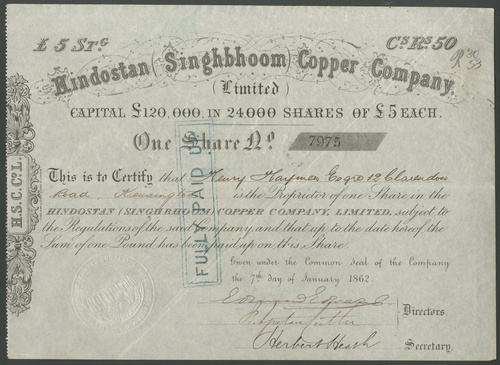 £5 STG Cs Rs 50
Hindostan (Singhbhoom) Copper Company,
(Limited)
CAPITAL £120,000, IN 24000 SHARES OF £5 EACH.
One Share No. 7975
This is to Certify that Henry Haymen Esqre 12 Clarendon
Road Kensington is the Proprietor of one Share in the
HINDOSTAN (SINGHBHOOM) COPPER COMPANY, LIMITED, subject to
the Regulations of the said Company and that up to the date hereof the
Sum of one Pound has been paid up on this Share.
Given under the Common Seal of the Company
the 7th day of January 1862.
Directors.
Herbert Heath
Secretary.
H.S.C.Co L.
FULLY PAID UP